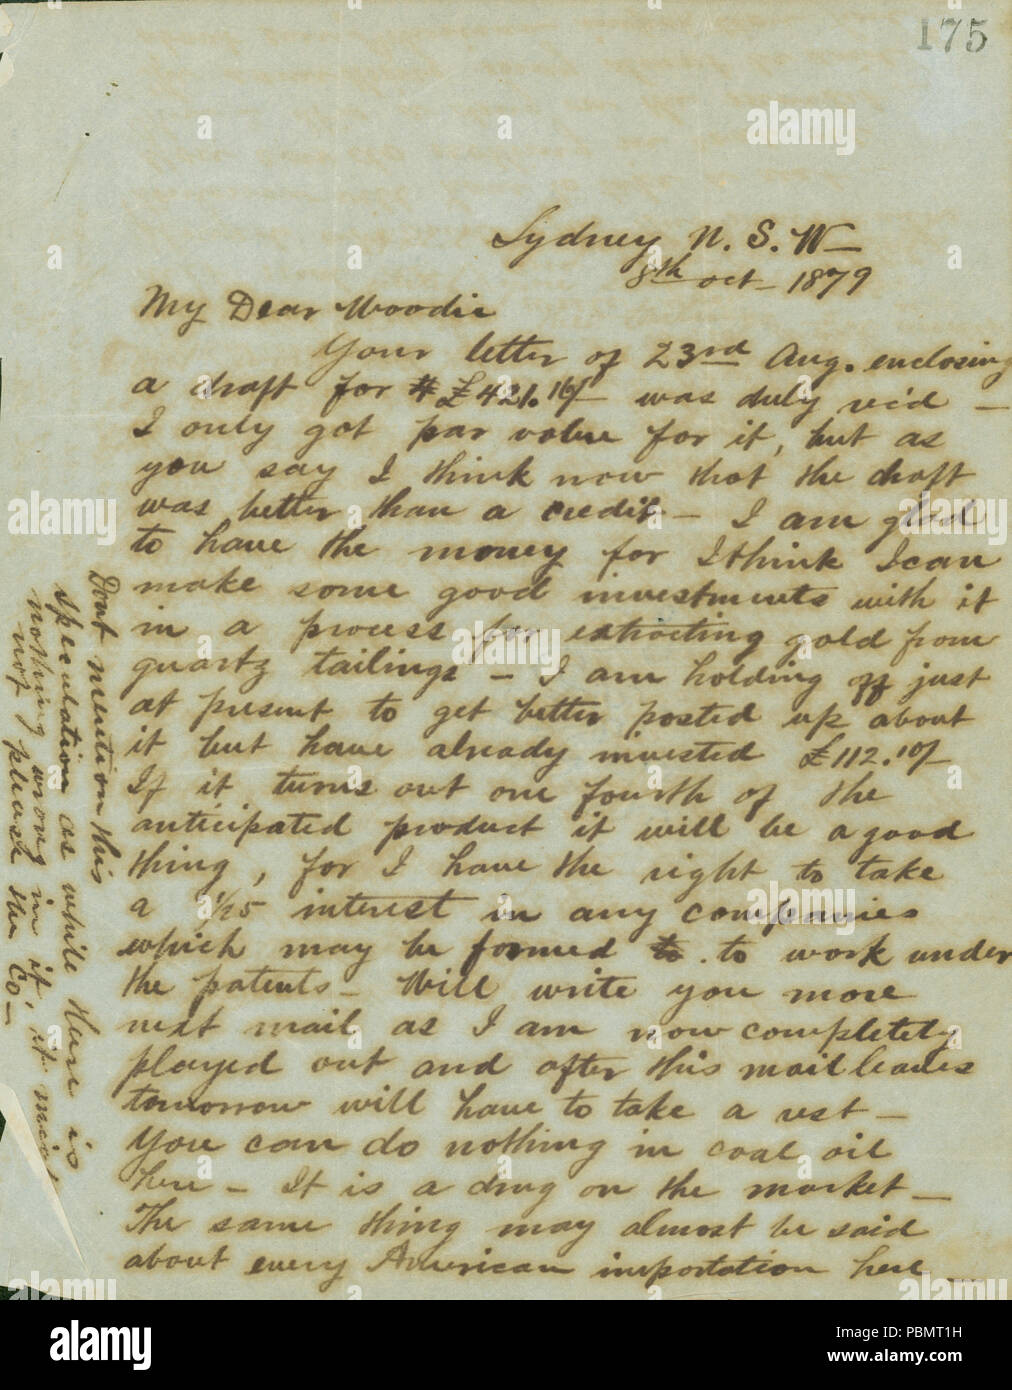 175
Sydney N. S. W—
8th Oct— 1879
My Dear Woodie
Your letter of 23rd Aug. enclosing
a draft for £421.16/— was duly rec'd —
I only got par value for it, but as
you say I think now that the draft
was better than a credit — I am glad
to have the money for I think I can
make some good investments with it
in a process for extracting gold from
quartz tailings — I am holding off just
at present to get better posted up about
it but have already invested £112.10/—
If it turns out one fourth of the
anticipated product it will be a good
thing, for I have the right to take
a 1/25 interest in any companies
which may be formed to work under
the patents — Will write you more
next mail as I am now completely
played out and after this mail leaves
tomorrow will have to take a rest —
You can do nothing in coal oil
here — It is a drug on the market —
The same thing may almost be said
about every American importation here —
Dont mention this
speculation as while there is
nothing wrong in it, it might
not please the Co—
a
alamy
alamy stock photo
PBMT1H
www.alamy.com